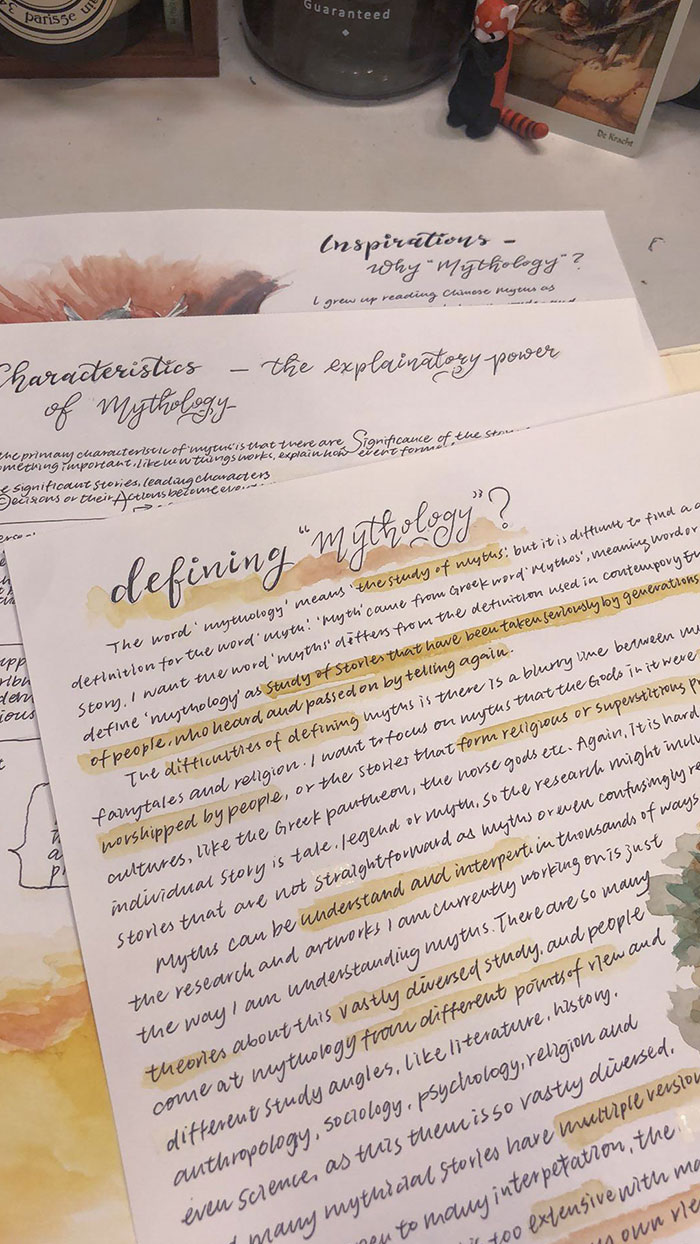 parisse
Guaranteed
De Kracht
Inspirations -
Why "Mythology"?
I grew up reading Chinese myths as
Characteristics - the explainatory power
of Mythology
the primary characteristic of 'myths' is that there are Significance of the
something important, like how things works, explain how event
significant stories, leading characters
Decisions or their Actions become
defining "Mythology"?
The word 'mythology' means 'the study of myths', but it is difficult to find a
definition for the word 'myth'. 'Myth' came from Greek word 'Mythos', meaning word or
story. I want the word 'myths' differs from the definition used in contemporary
define 'mythology' as study of stories that have been taken seriously by generations
of people, who heard and passed on by telling again.
The difficulties of defining myths is there is a blurry line between
fairytales and religion. I want to focus on myths that the Gods in it were
worshipped by people, or the stories that form religious or superstitious
cultures, like the Greek pantheon, the norse gods etc. Again, it is hard
individual story is tale, legend or myth, so the research might
stories that are not straightforward as myths or even confusingly
Myths can be understand and interpert in thousands of ways
the research and artworks I am currently working on is just
the way I am understanding myths. There are so many
theories about this vastly diversed study, and people
come at mythology from different points of view and
different study angles, like literature, history,
anthropology, sociology, psychology, religion and
even science, as this them is so vastly diversed.
many mythicial stories have multiple
to many interpetation, the
too extensive with
own